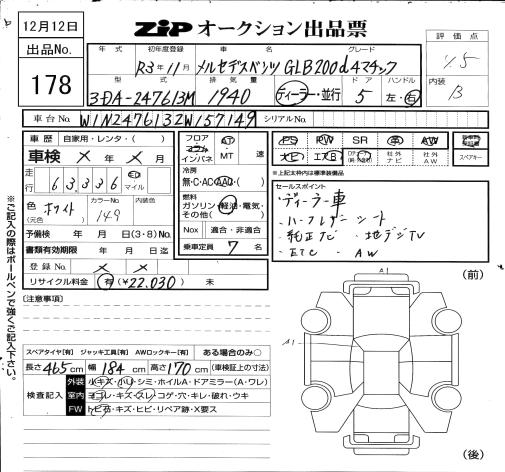 12月12日
ZIP オークション出品票
出品No.
178
評価点
内装
B
年式 初年度登録 車名 グレード
R3年11月 メルセデスベンツ GLB200d4マチック
型式 排気量 ドア ハンドル
3DA-247613M 1940 ディーラー・並行 5 左・右
車台No. W1N2476132W157149 シリアルNo.
車歴 自家用・レンタ( )
車検 × 年 × 月
走行 63,336 km マイル
色(元色) ホワイト カラーNo. 149 内装色
予備検 年 月 日(3・8)No.
書類有効期限 年 月 日迄
登録No. × ×
リサイクル料金 有(¥22,030) 未
フロア コラム インパネ AT MT 速
冷房 無・C・AC・AAC( )
燃料 ガソリン・軽油・電気・その他( )
Nox 適合・非適合
乗車定員 7 名
PS PW SR 革 AW
ナビ エアB 社外ナビ 社外AW
新車時保証書
スペアキー
※上記太枠内は標準装備品
セールスポイント
ディーラー車
・ハーフレザーシート
・純正ナビ ・地デジTV
・ETC ・AW
※ご記入の際はボールペンで強くご記入下さい。
(注意事項)
スペアタイヤ[有] ジャッキ工具[有] AWロックキー[有] ある場合のみ○
長さ465cm 幅184cm 高さ170cm (車検証上の寸法)
検査記入
外装 小キズ・小凹・シミ・ホイルA・ドアミラー(A・ワレ)
室内 ヨゴレ・キズ・スレ・コゲ・穴・キレ・破れ・ウキ
FW トビ石・キズ・ヒビ・リペア跡・X要ス
(前)
A1
A1
(後)